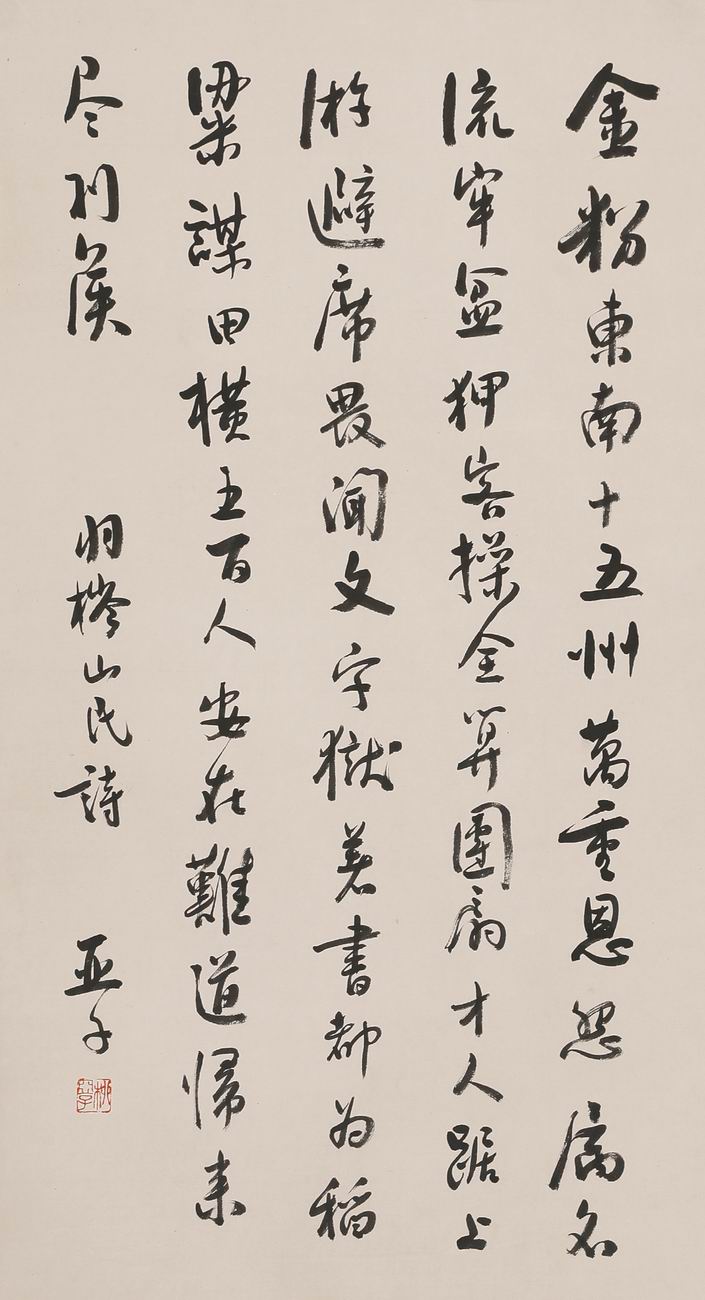 金粉東南十五州萬重恩怨属名
流牢盆狎客操全算團扇才人踞上
游避席畏聞文字獄著書都為稻
粱謀田橫五百人安在難道歸来
尽列侯
羽琌山民詩
亚子